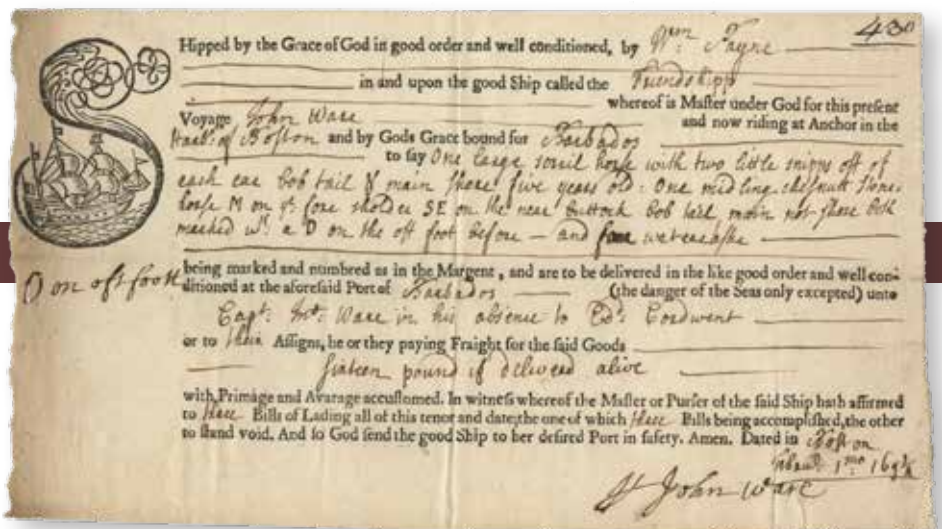 430
SHipped by the Grace of God in good order and well conditioned, by Wm. Payne
in and upon the good Ship called the Friendshipp
whereof is Master under God for this present
Voyage John Ware and now riding at Anchor in the
Harbr. of Boston and by Gods Grace bound for Barbados
to say One large sorril horse with two little snipps off of
each ear bob tail & main shore five years old: One midling chesnutt stone-
horse M on ye. fore sholder SE on the near buttock bob tail, main not shore both
marked wt. a D on the off foot before — and four water caske
D on off foot
being marked and numbred as in the Margent, and are to be delivered in the like good order and well con-
ditioned at the aforesaid Port of Barbados (the danger of the Seas only excepted) unto
Capt. Jno. Ware in his absence to Ed. Cordwent
or to their Assigns, he or they paying Fraight for the said Goods
sixteen pound if delivered alive
with Primage and Avarage accustomed. In witness whereof the Master or Purser of the said Ship hath affirmed
to three Bills of Lading all of this tenor and date, the one of which three Bills being accomplished, the other
to stand void. And so God send the good Ship to her desired Port in safety. Amen. Dated in Boston
1mo 169
John Ware